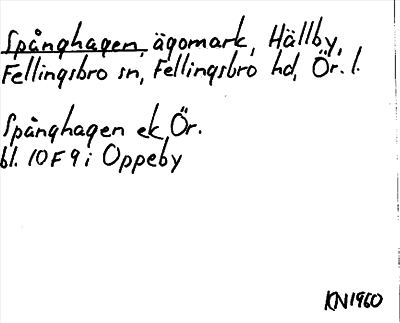 Spånghagen, ägomark, Hällby,
Fellingsbro sn, Fellingsbro hd, Ör. l.
Spånghagen ek Ör.
bl. 10F 9i Oppeby
KN1960